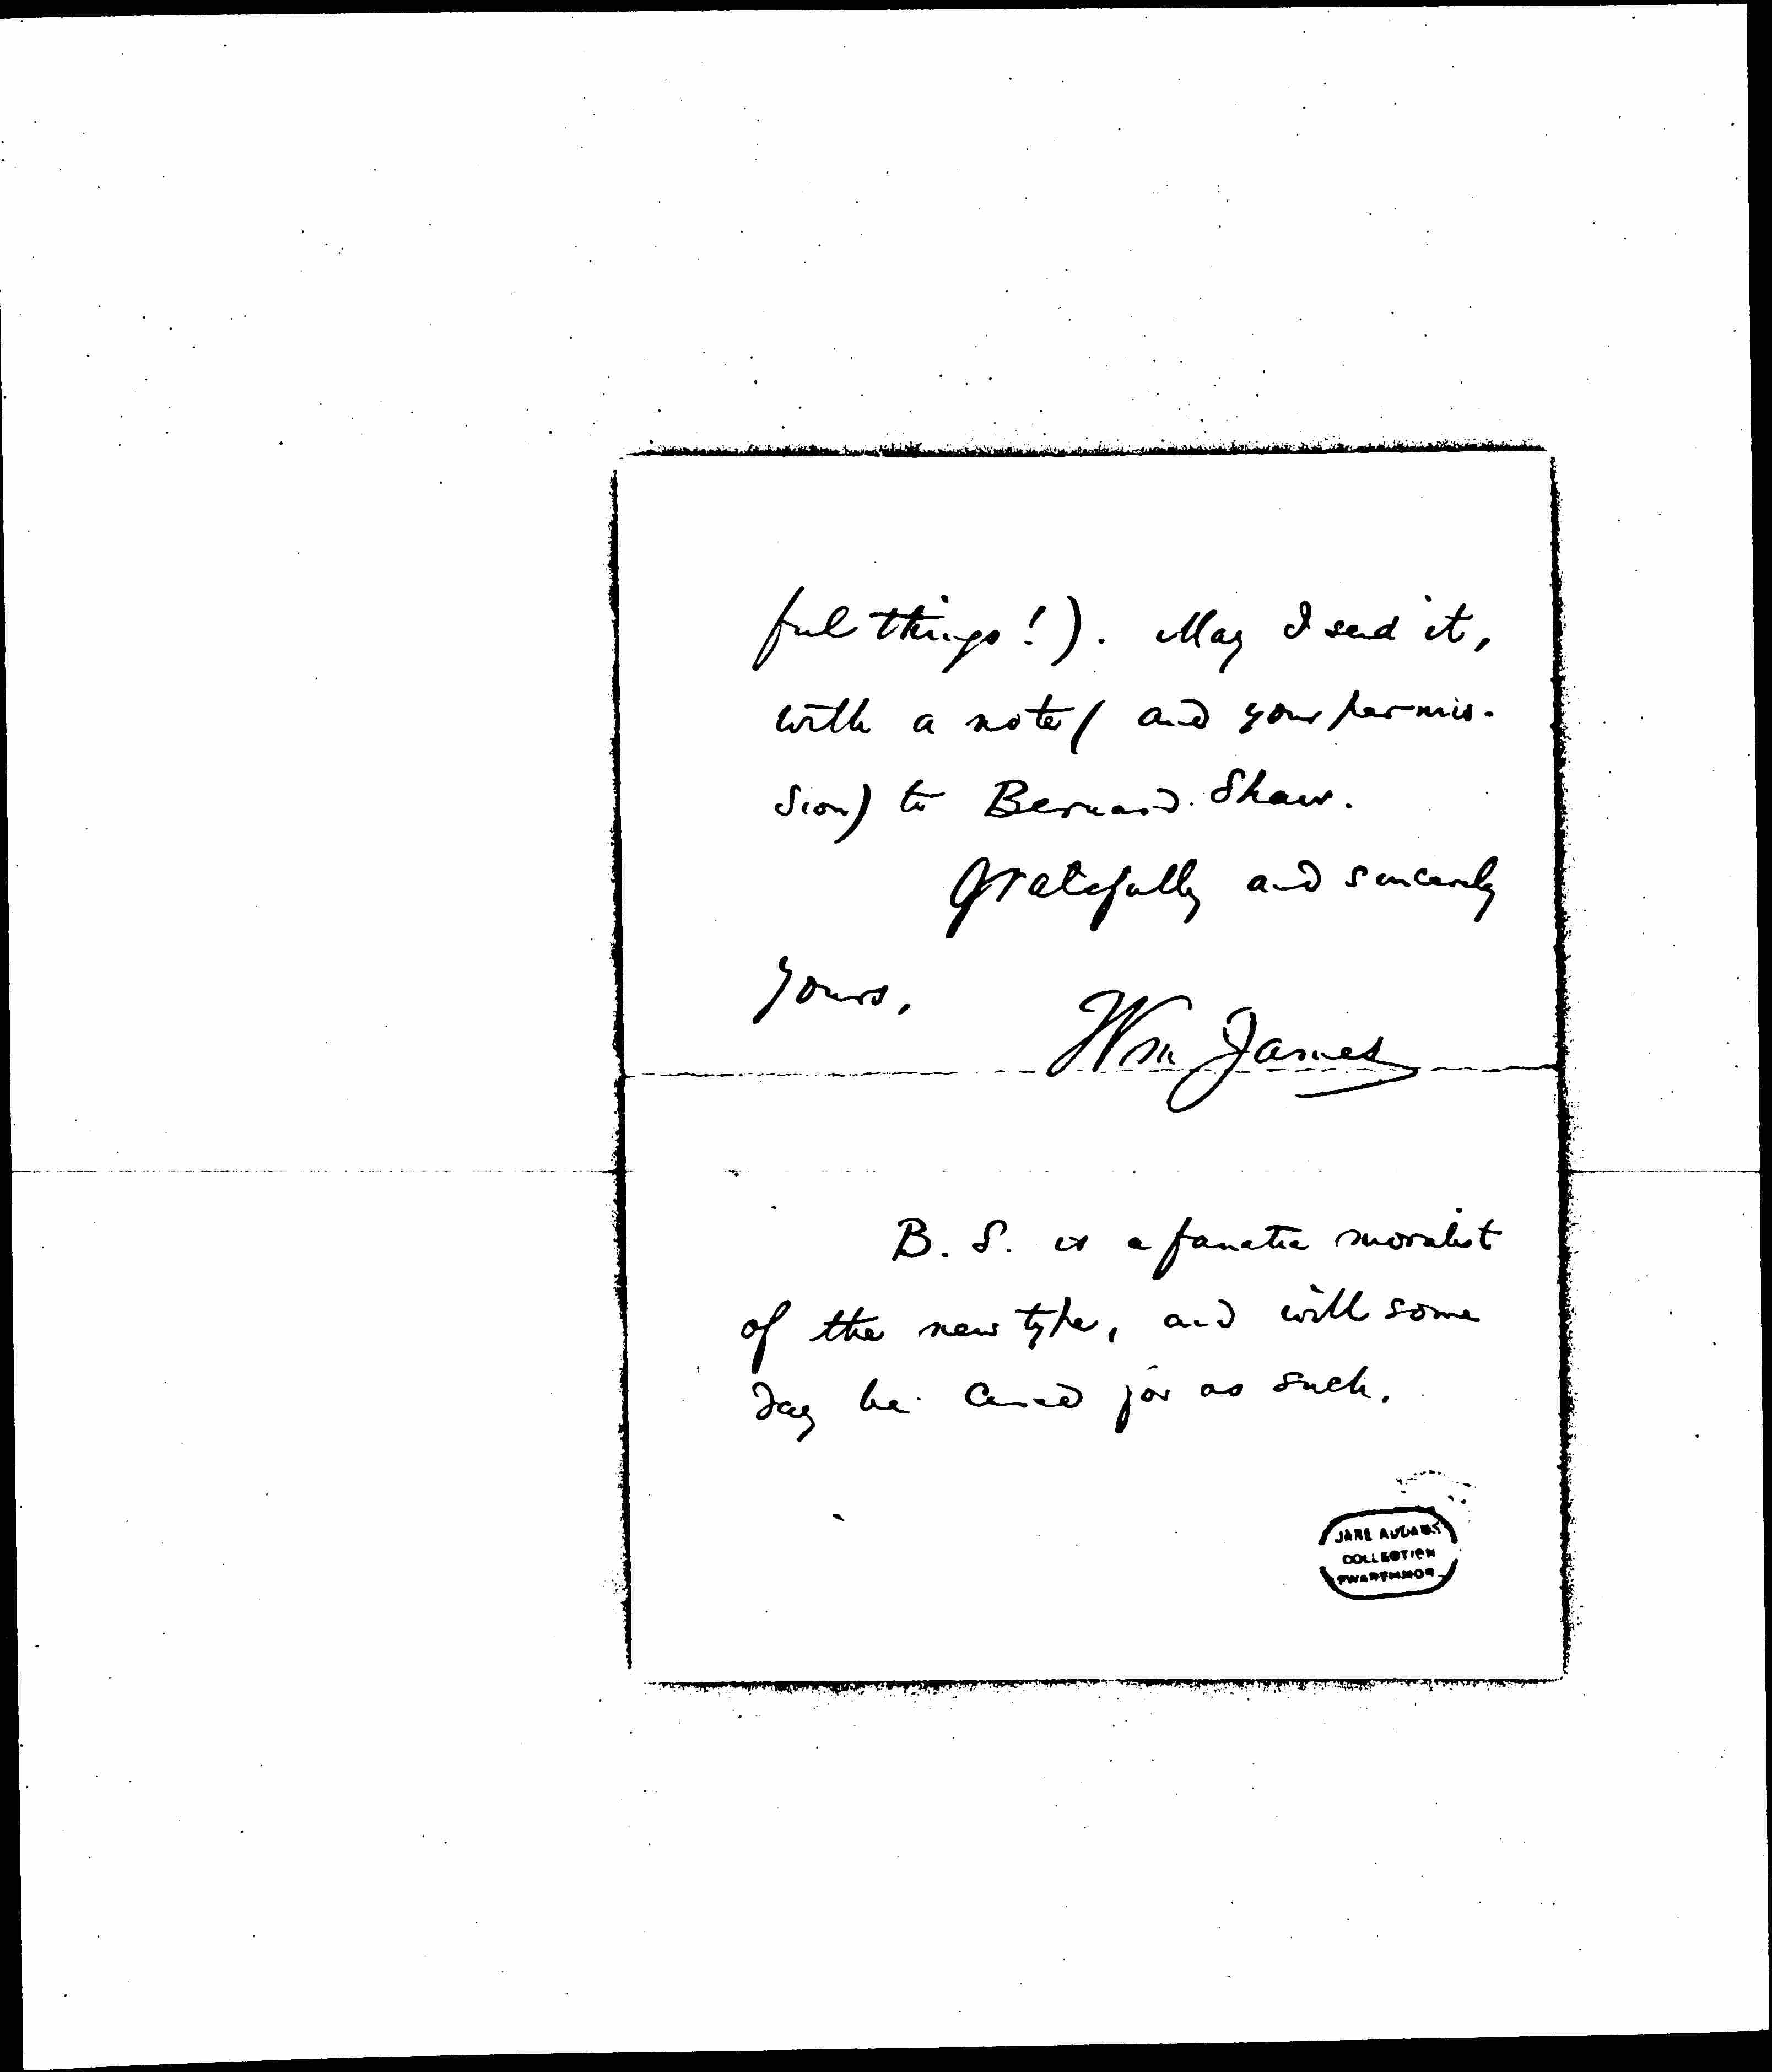 ful things!). May I send it,
with a note (and your permis-
sion) to Bernard Shaw.
Gratefully and sincerely
yours,
Wm James
B. S. is a fanatic moralist
of the new type, and will some
day be cared for as such.
JANE ADDAMS
COLLECTION
SWARTHMORE